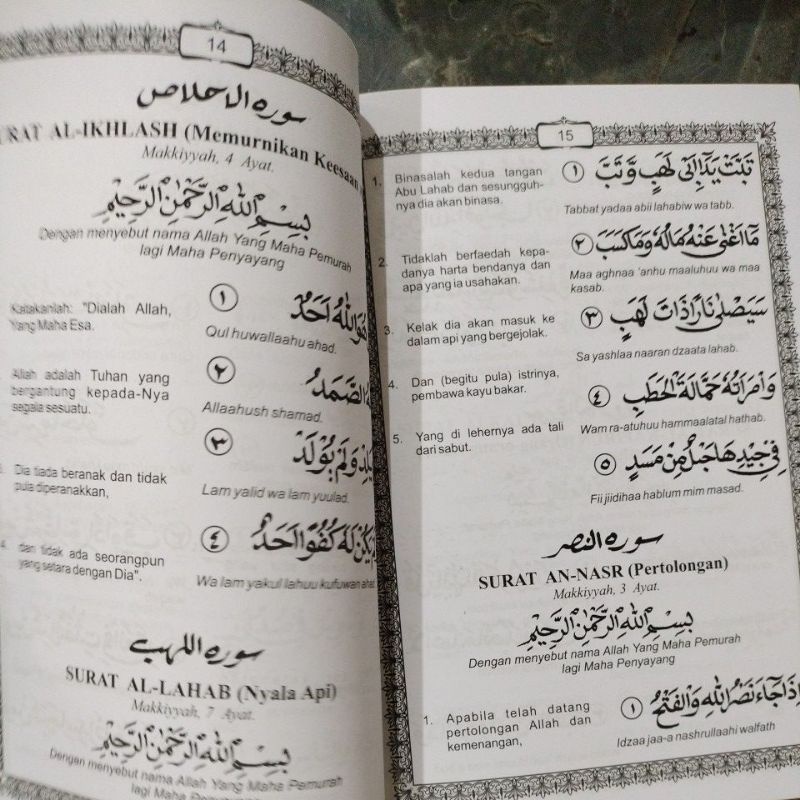 14
سورة الاخلاص
URAT AL-IKHLASH (Memurnikan Keesaan
Makkiyyah, 4 Ayat.
بِسْمِ اللّٰهِ الرَّحْمٰنِ الرَّحِيْمِ
Dengan menyebut nama Allah Yang Maha Pemurah
lagi Maha Penyayang
Katakanlah: "Dialah Allah,
Yang Maha Esa.
هُوَاللّٰهُ اَحَدٌ ١
Qul huwallaahu ahad.
Allah adalah Tuhan yang
bergantung kepada-Nya
segala sesuatu.
الصَّمَدُ ٢
Allaahush shamad.
Dia tiada beranak dan tidak
pula diperanakkan,
يَلِدْ وَلَمْ يُوْلَدْ ٣
Lam yalid wa lam yuulad.
4. dan tidak ada seorangpun
yang setara dengan Dia".
يَكُنْ لَهُ كُفُوًا اَحَدٌ ٤
Wa lam yakul lahuu kufuwan ahad
سورة اللهب
SURAT AL-LAHAB (Nyala Api)
Makkiyyah, 7 Ayat.
بِسْمِ اللّٰهِ الرَّحْمٰنِ الرَّحِيْمِ
Dengan menyebut nama Allah Yang Maha Pemurah
lagi Maha Penyayang
15
1. Binasalah kedua tangan
Abu Lahab dan sesungguh-
nya dia akan binasa.
تَبَّتْ يَدَآ اِبِى لَهَبٍ وَّتَبَّ ١
Tabbat yadaa abii lahabiw wa tabb.
2. Tidaklah berfaedah kepa-
danya harta bendanya dan
apa yang ia usahakan.
مَا اَغْنٰى عَنْهُ مَالُهُ وَمَاكَسَبَ ٢
Maa aghnaa 'anhu maaluhuu wa maa
kasab.
3. Kelak dia akan masuk ke
dalam api yang bergejolak.
سَيَصْلٰى نَارًا ذَاتَ لَهَبٍ ٣
Sa yashlaa naaran dzaata lahab.
4. Dan (begitu pula) istrinya,
pembawa kayu bakar.
وَامْرَاَتُهُ حَمَّالَةَ الْحَطَبِ ٤
Wam ra-atuhuu hammaalatal hathab.
5. Yang di lehernya ada tali
dari sabut.
فِيْ جِيْدِهَا حَبْلٌ مِّنْ مَسَدٍ ٥
Fii jiidihaa hablum mim masad.
سورة النصر
SURAT AN-NASR (Pertolongan)
Makkiyyah, 3 Ayat.
بِسْمِ اللّٰهِ الرَّحْمٰنِ الرَّحِيْمِ
Dengan menyebut nama Allah Yang Maha Pemurah
lagi Maha Penyayang
1. Apabila telah datang
pertolongan Allah dan
kemenangan,
اِذَا جَاءَ نَصْرُ اللّٰهِ وَالْفَتْحُ ١
Idzaa jaa-a nashrullaahi walfath